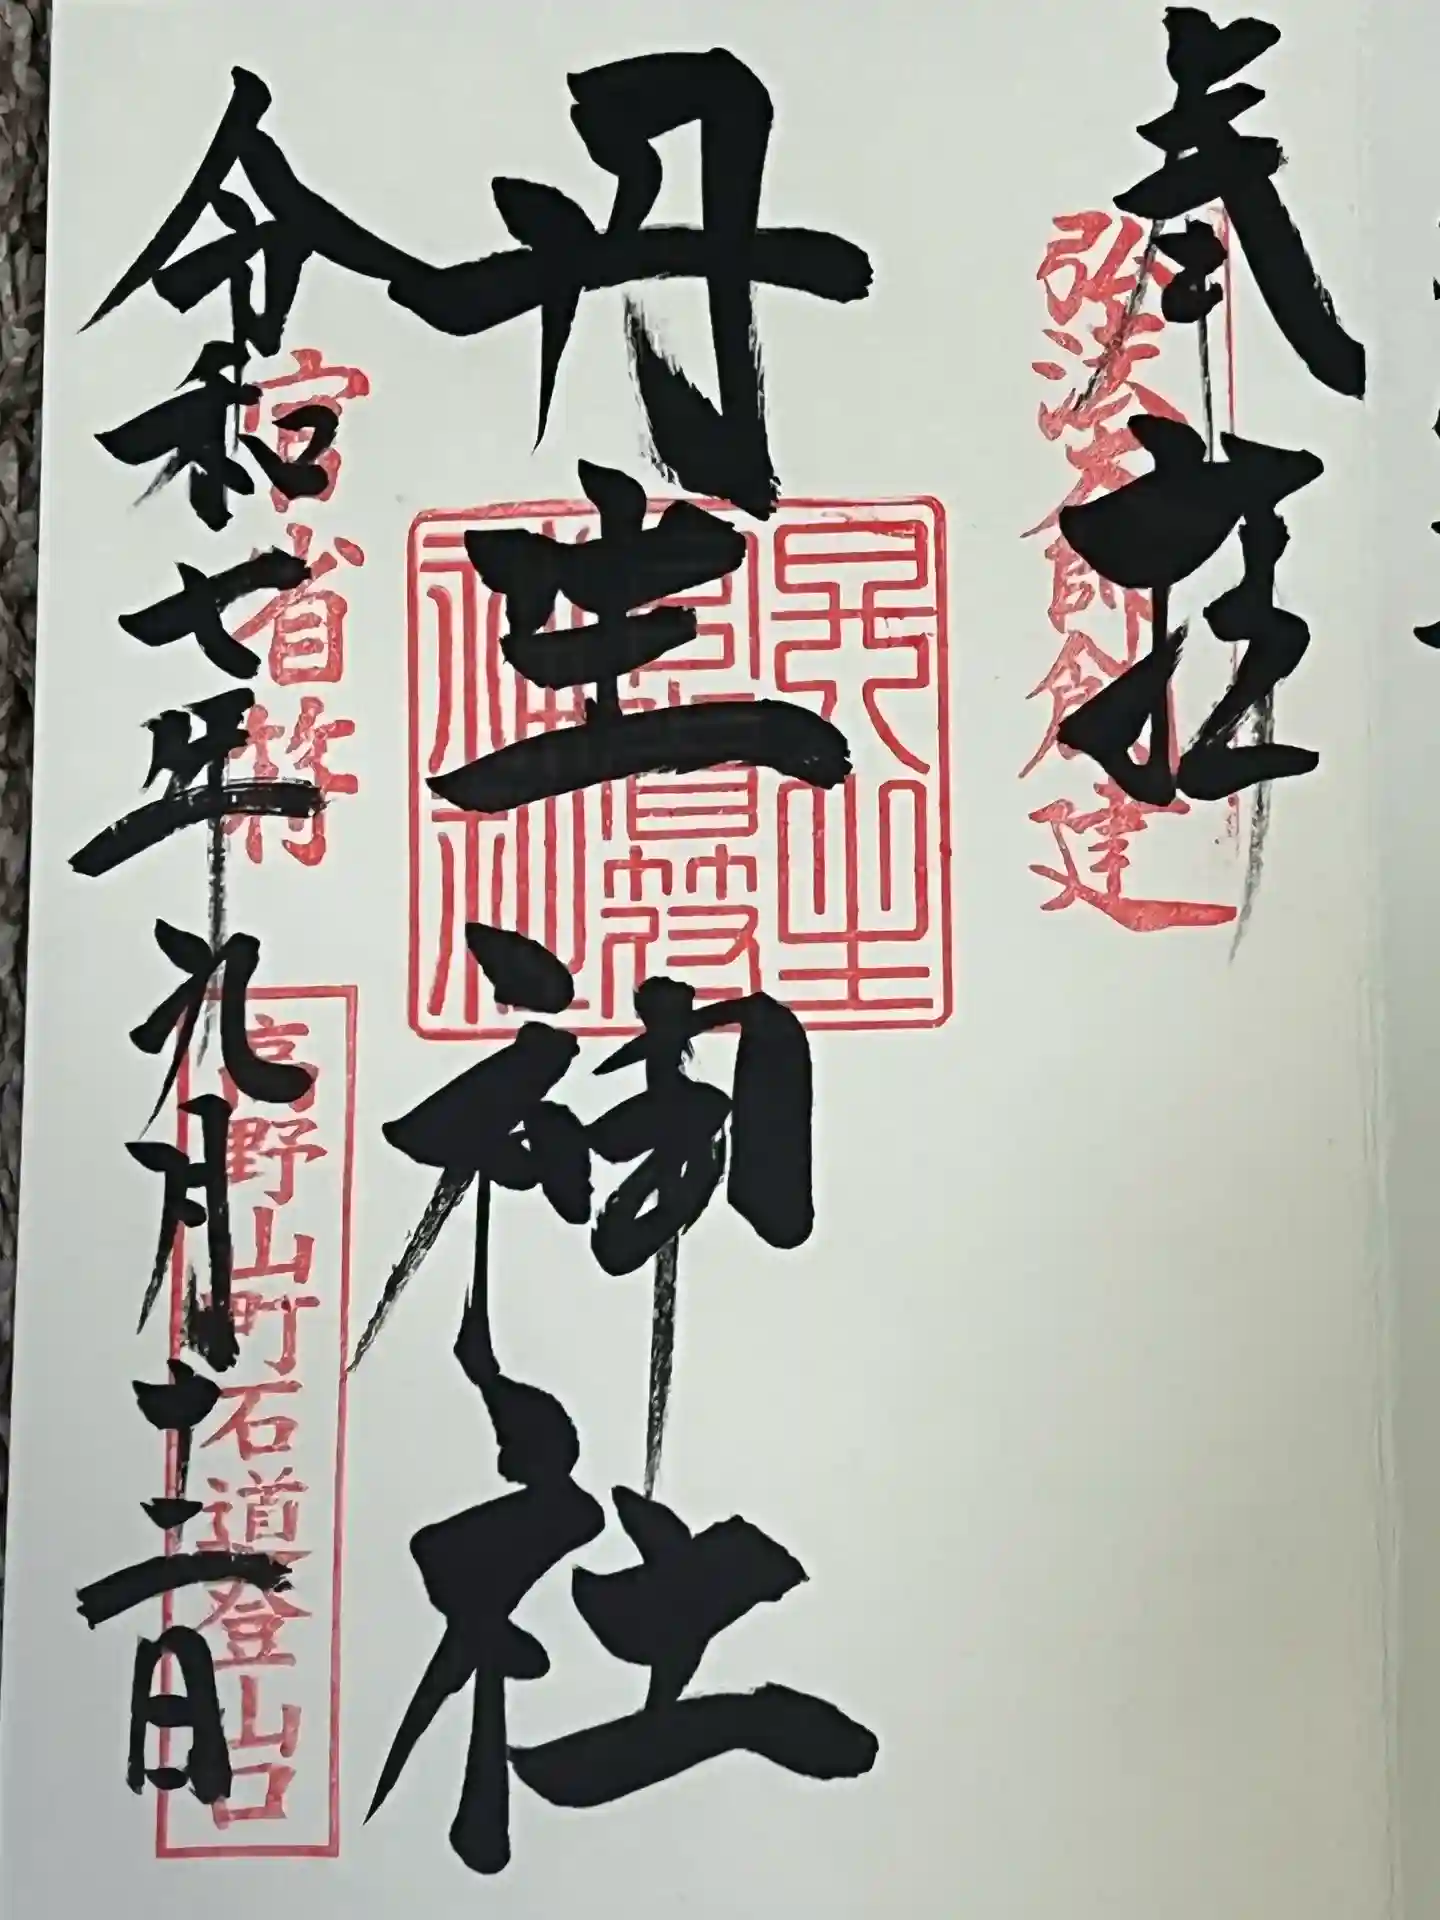 奉拝
弘法大師創建
丹生神社
丹生
官省符
神社
令和七年九月十二日
官省符
高野山町石道登山口